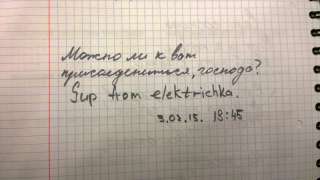 Можно ли к вам
присоедениться, господа?
Sup from elektrichka.
3.02.15. 18:45